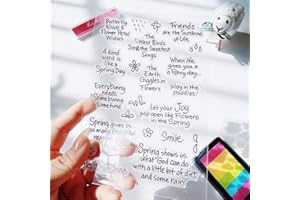 Butterfly
Kisses &
Flower Petal
Wishes
Friends
are the Sunshine
of Life
the
Littlest Birds
Sing the Sweetest
Songs
A kind
word is
like a
Spring Day
When life
gives you a
rainy day...
play in the
puddles!
the
Earth
Giggles in
Flowers
Everybody
needs
Some bunny
Sometime
Let your Joy
pop open like Flowers
in the Spring
Spring gives us
so many beautiful
Smile
Spring shows us
what God can do
with a little bit of dirt
and some rain